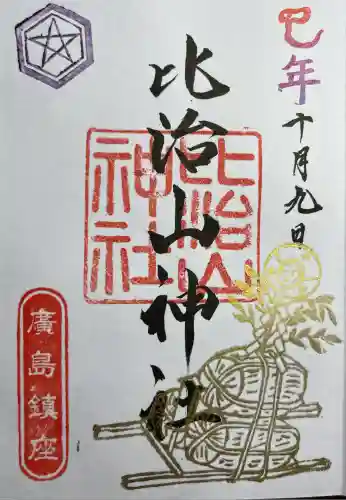 巳年
十月九日
比治山神社
比治山
神社
廣島鎮座